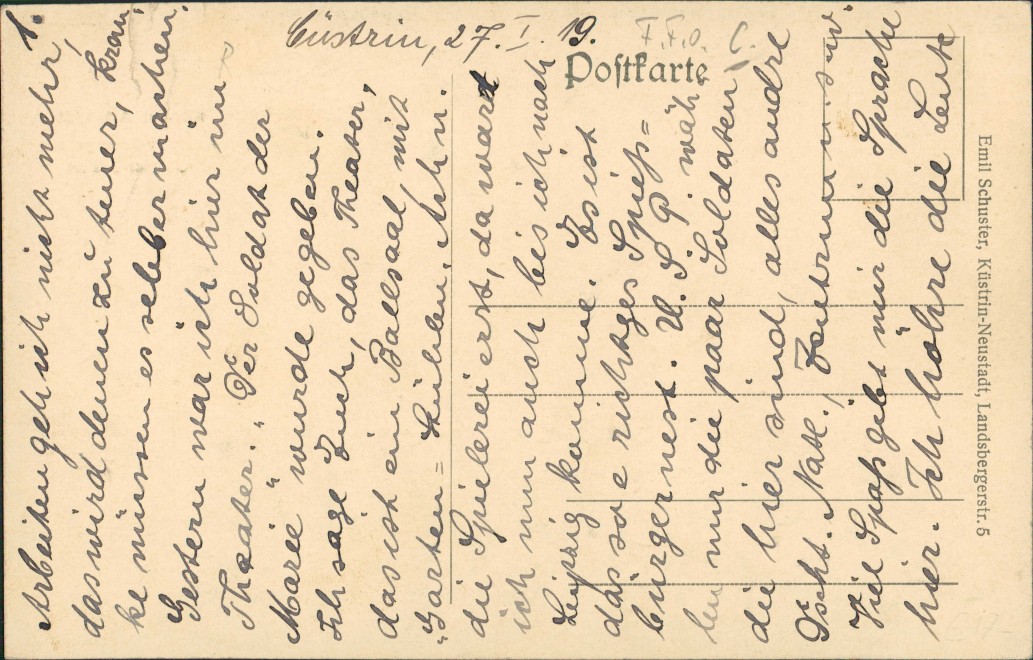 Cüstrin, 27. I. 19.
F.F.O. C.
Postkarte
1.
Arbeiten geh ich nicht mehr,
das wird denen zu teuer, kran,
ke müssen es selber machen.
Gestern war ich hier im
Theater. „Der Soldat der
Marie" wurde gegeben.
Ich sage Euch, das Theater,
das ist ein Ballsaal mit
„Garten"= Stühlen. Ach n.
die Spielerei erst, da wart
ich nun auch bis ich nach
Leipzig komme. Es ist
das so e richtges Spieß=
bürgernest. U. S. P. wäh,
len nur die paar Soldaten
die hier sind, alles andre
Dscht. Natl.
Viel Spaß gibt mir die Sprache
hier. Ich höhre die Leute
Emil Schuster, Küstrin-Neustadt, Landsbergerstr. 5